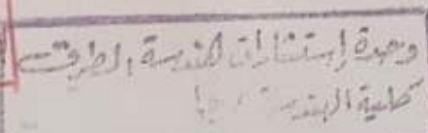 وحدة إستشارات هندسة الطرق
كلية الهندسة